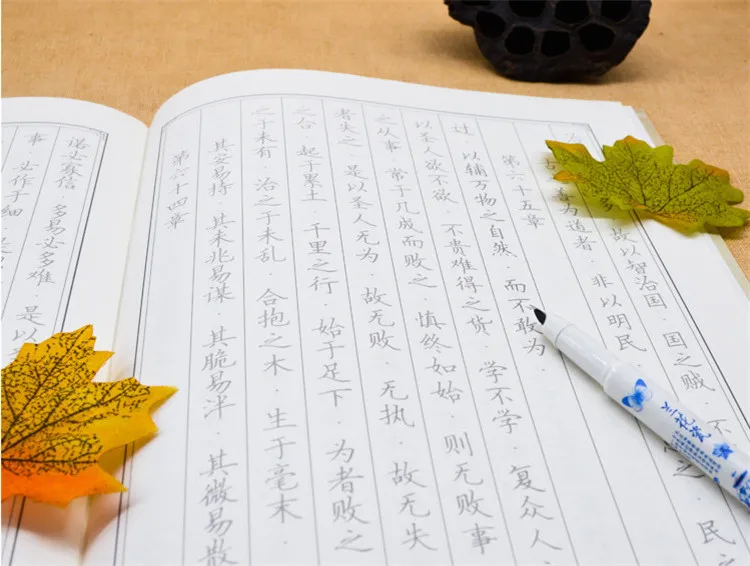 事 · 必作于细 · 是
诺必寡信 · 多易必多难 · 是以
第六十四章
其安易持 · 其未兆易谋 · 其脆易泮 · 其微易散
之于未有 · 治之于未乱 · 合抱之木 · 生于毫末 ·
之台 · 起于累土 · 千里之行 · 始于足下 · 为者败之
者失之 · 是以圣人无为 · 故无败 · 无执 · 故无失
之从事 · 常于几成而败之 · 慎终如始 · 则无败事
以圣人欲不欲 · 不贵难得之货 · 学不学 · 复众人
过 · 以辅万物之自然 · 而不敢为 ·
第六十五章
古 善为道者 · 非以明民 之 民之
治 故以智治国 · 国之贼 · 不
兰花瓷